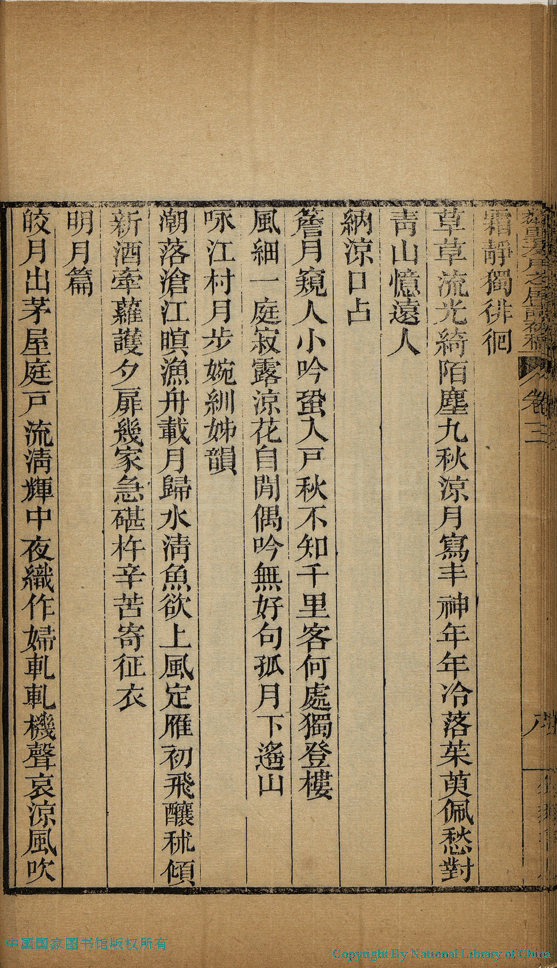 霜靜獨徘徊
草草流光綺陌塵九秋涼月寫丰神年年冷落茱萸佩愁對
靑山憶遠人
納涼口占
簷月窺人小吟蛩入戸秋不知千里客何處獨登樓
風細一庭寂露涼花自閒偶吟無好句孤月下遙山
咏江村月步婉紃姊韻
潮落滄江暝漁舟載月歸水淸魚欲上風定雁初飛釀秫傾
新酒牽蘿護夕扉幾家急碪杵辛苦寄征衣
明月篇
皎月出茅屋庭戸流淸輝中夜織作婦軋軋機聲哀涼風吹
卷三
八
中國國家图书馆版权所有
Copyright By National Library of China